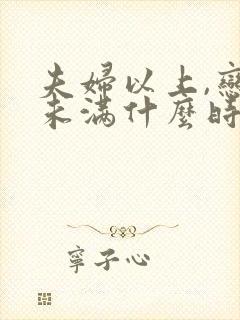 夫婦以上,戀
未滿什麼時
寧子心